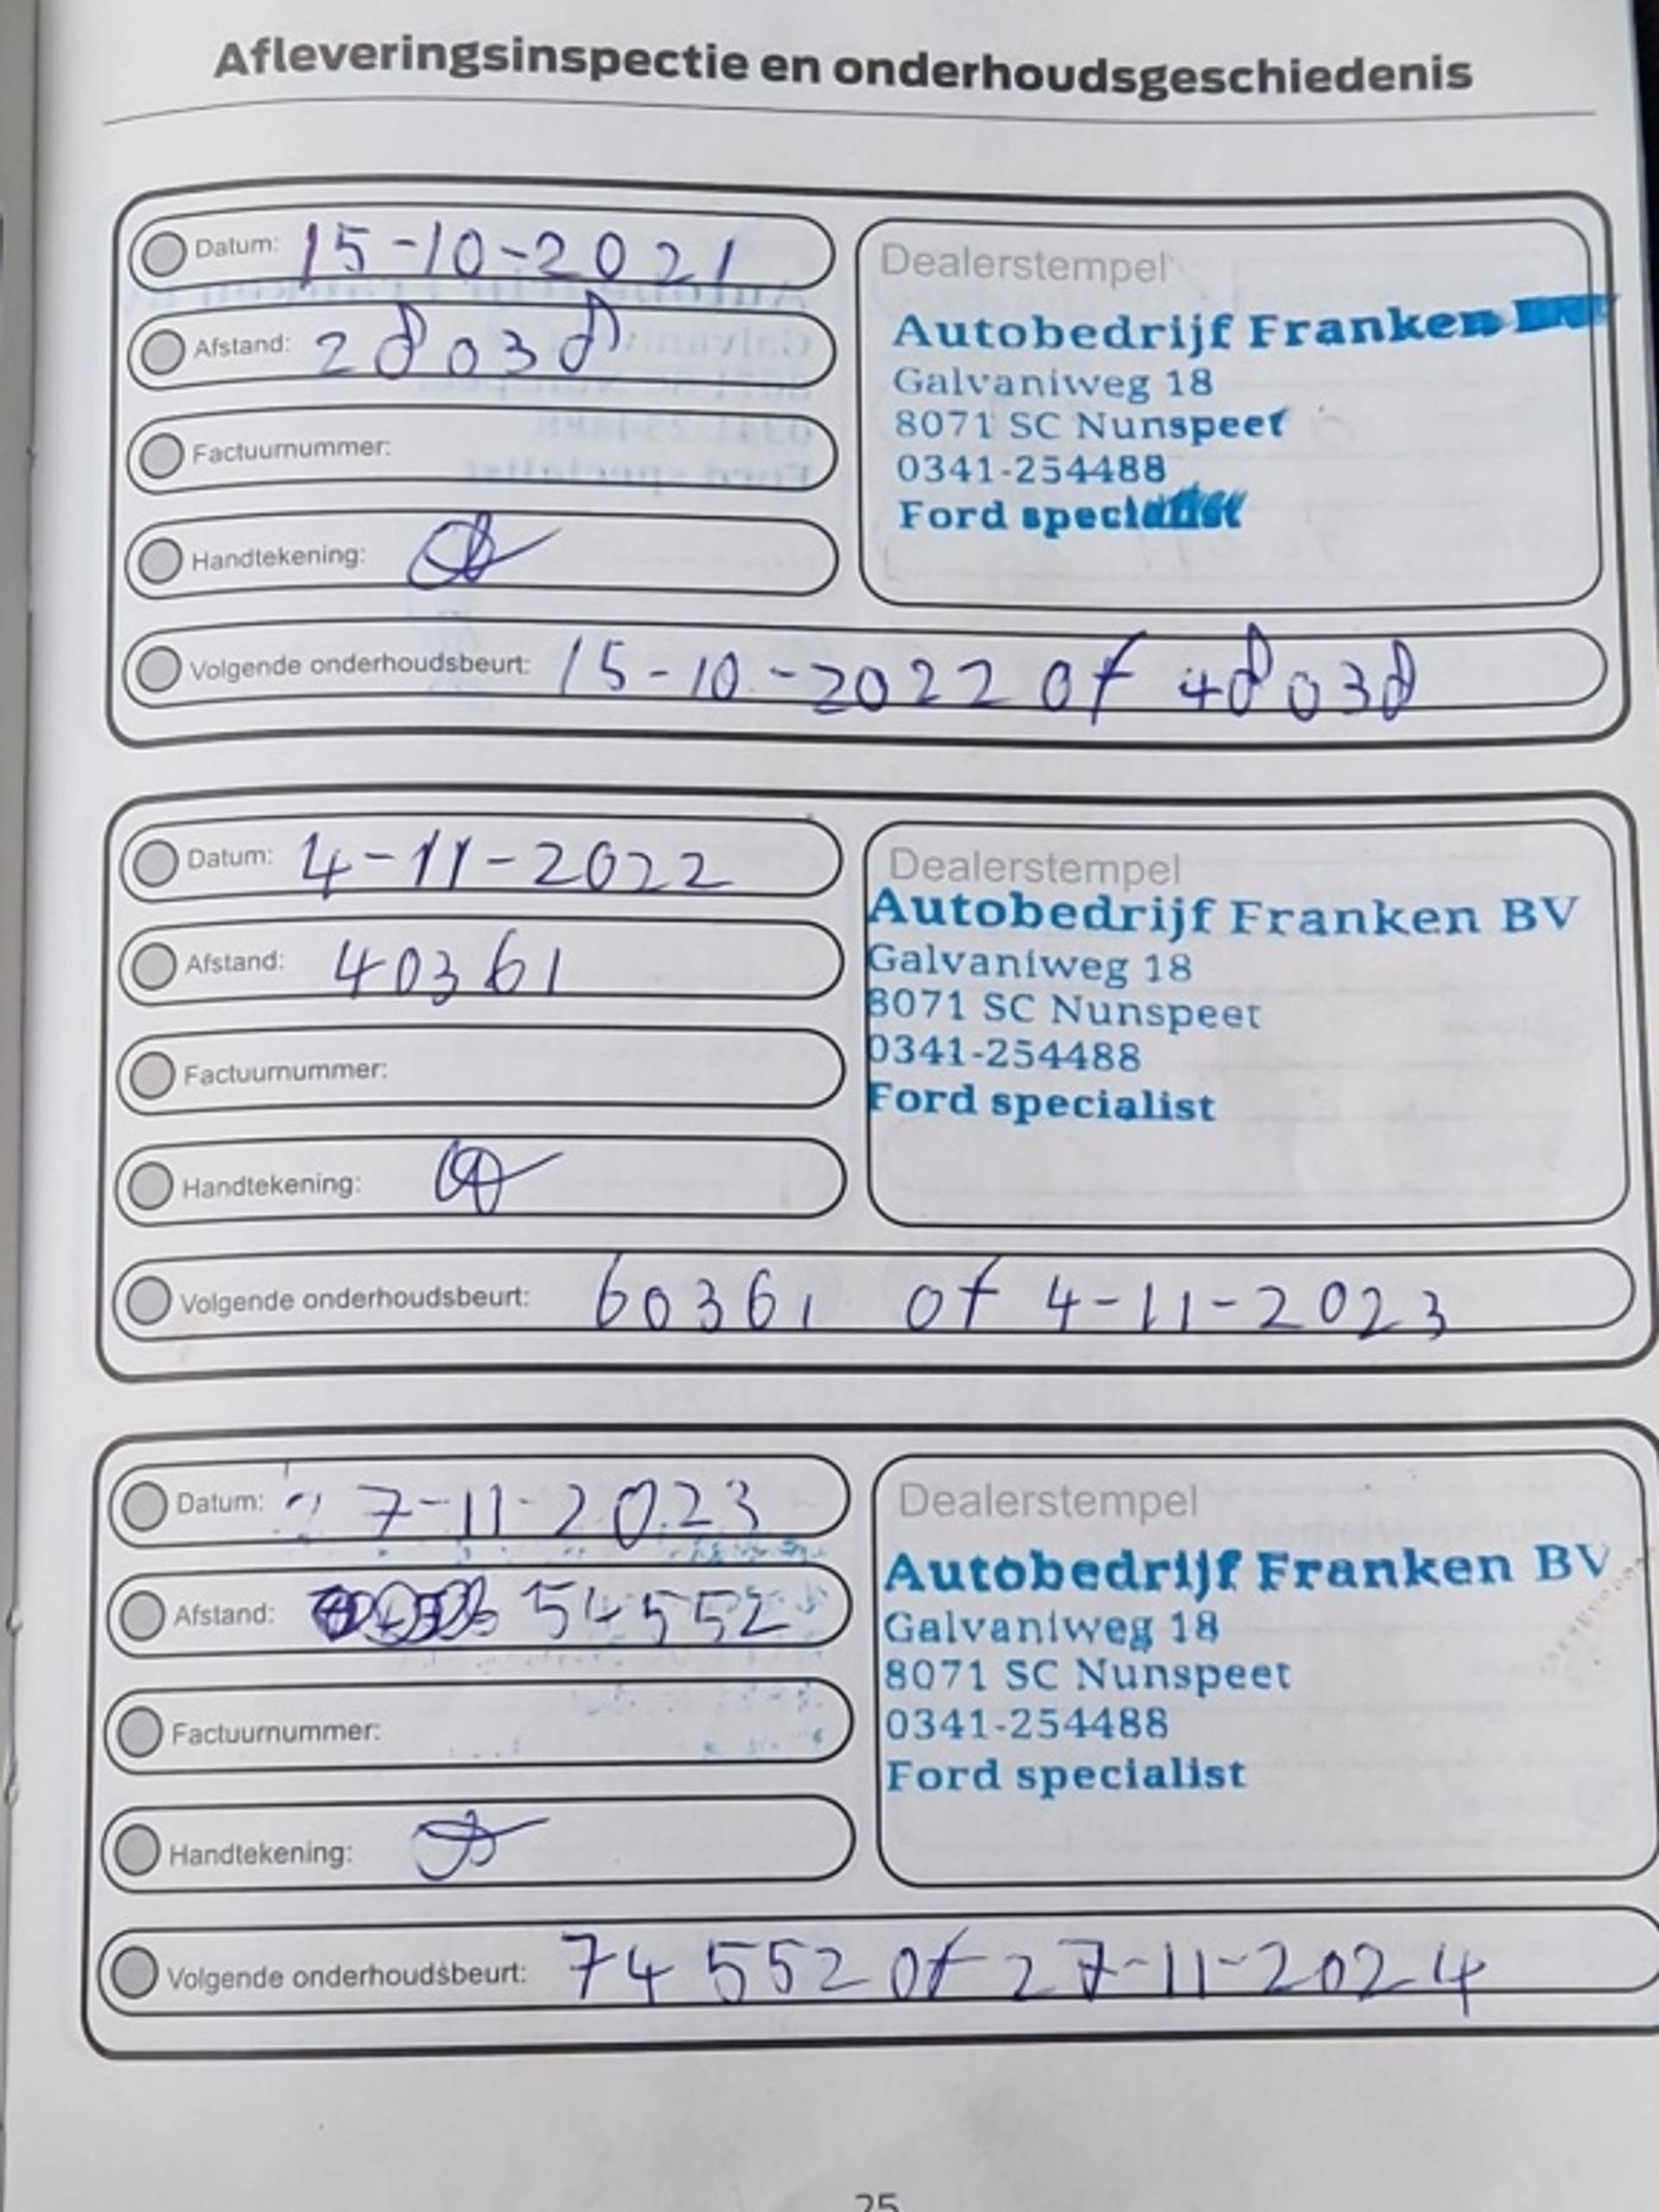 Afleveringsinspectie en onderhoudsgeschiedenis
Datum: 15-10-2021
Afstand: 28038
Factuurnummer:
Handtekening:
Dealerstempel
Autobedrijf Franken
Galvaniweg 18
8071 SC Nunspeet
0341-254488
Ford specialist
Volgende onderhoudsbeurt: 15-10-2022 of 48038
Datum: 4-11-2022
Afstand: 40361
Factuurnummer:
Handtekening:
Dealerstempel
Autobedrijf Franken BV
Galvaniweg 18
8071 SC Nunspeet
0341-254488
Ford specialist
Volgende onderhoudsbeurt: 60361 of 4-11-2023
Datum: 7-11-2023
Afstand: 54552
Factuurnummer:
Handtekening:
Dealerstempel
Autobedrijf Franken BV
Galvaniweg 18
8071 SC Nunspeet
0341-254488
Ford specialist
Volgende onderhoudsbeurt: 74552 of 27-11-2024